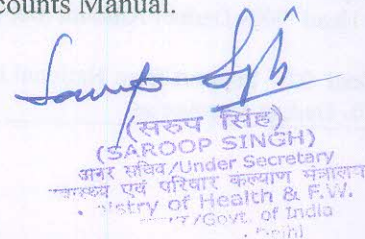 counts Manual.
Saroop Singh
(सरुप सिंह)
(SAROOP SINGH)
अवर सचिव/Under Secretary
स्वास्थ्य एवं परिवार कल्याण मंत्रालय
istry of Health & F.W.
/Govt. of India
Delhi